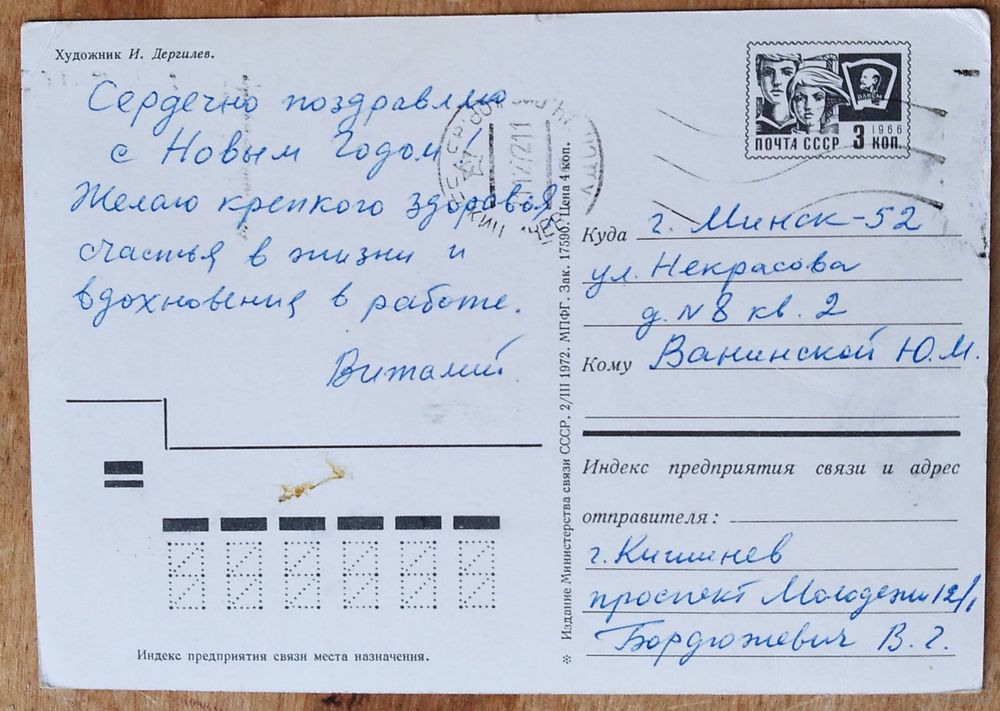 Художник И. Дергилев.
Сердечно поздравляю
с Новым Годом!
Желаю крепкого здоровья
счастья в жизни и
вдохновения в работе.
Виталий.
Индекс предприятия связи места назначения.
✻ Издание Министерства связи СССР. 2/III 1972. МПФГ. Зак. 17590. Цена 4 коп.
ВЛКСМ
1966
ПОЧТА СССР 3 КОП.
Куда г. Минск-52
ул. Некрасова
д. N 8 кв. 2
Кому Ванинской Ю.М.
Индекс предприятия связи и адрес
отправителя:
г. Кишинев
проспект Молодежи 12/1
Бордюжевич В. Г.